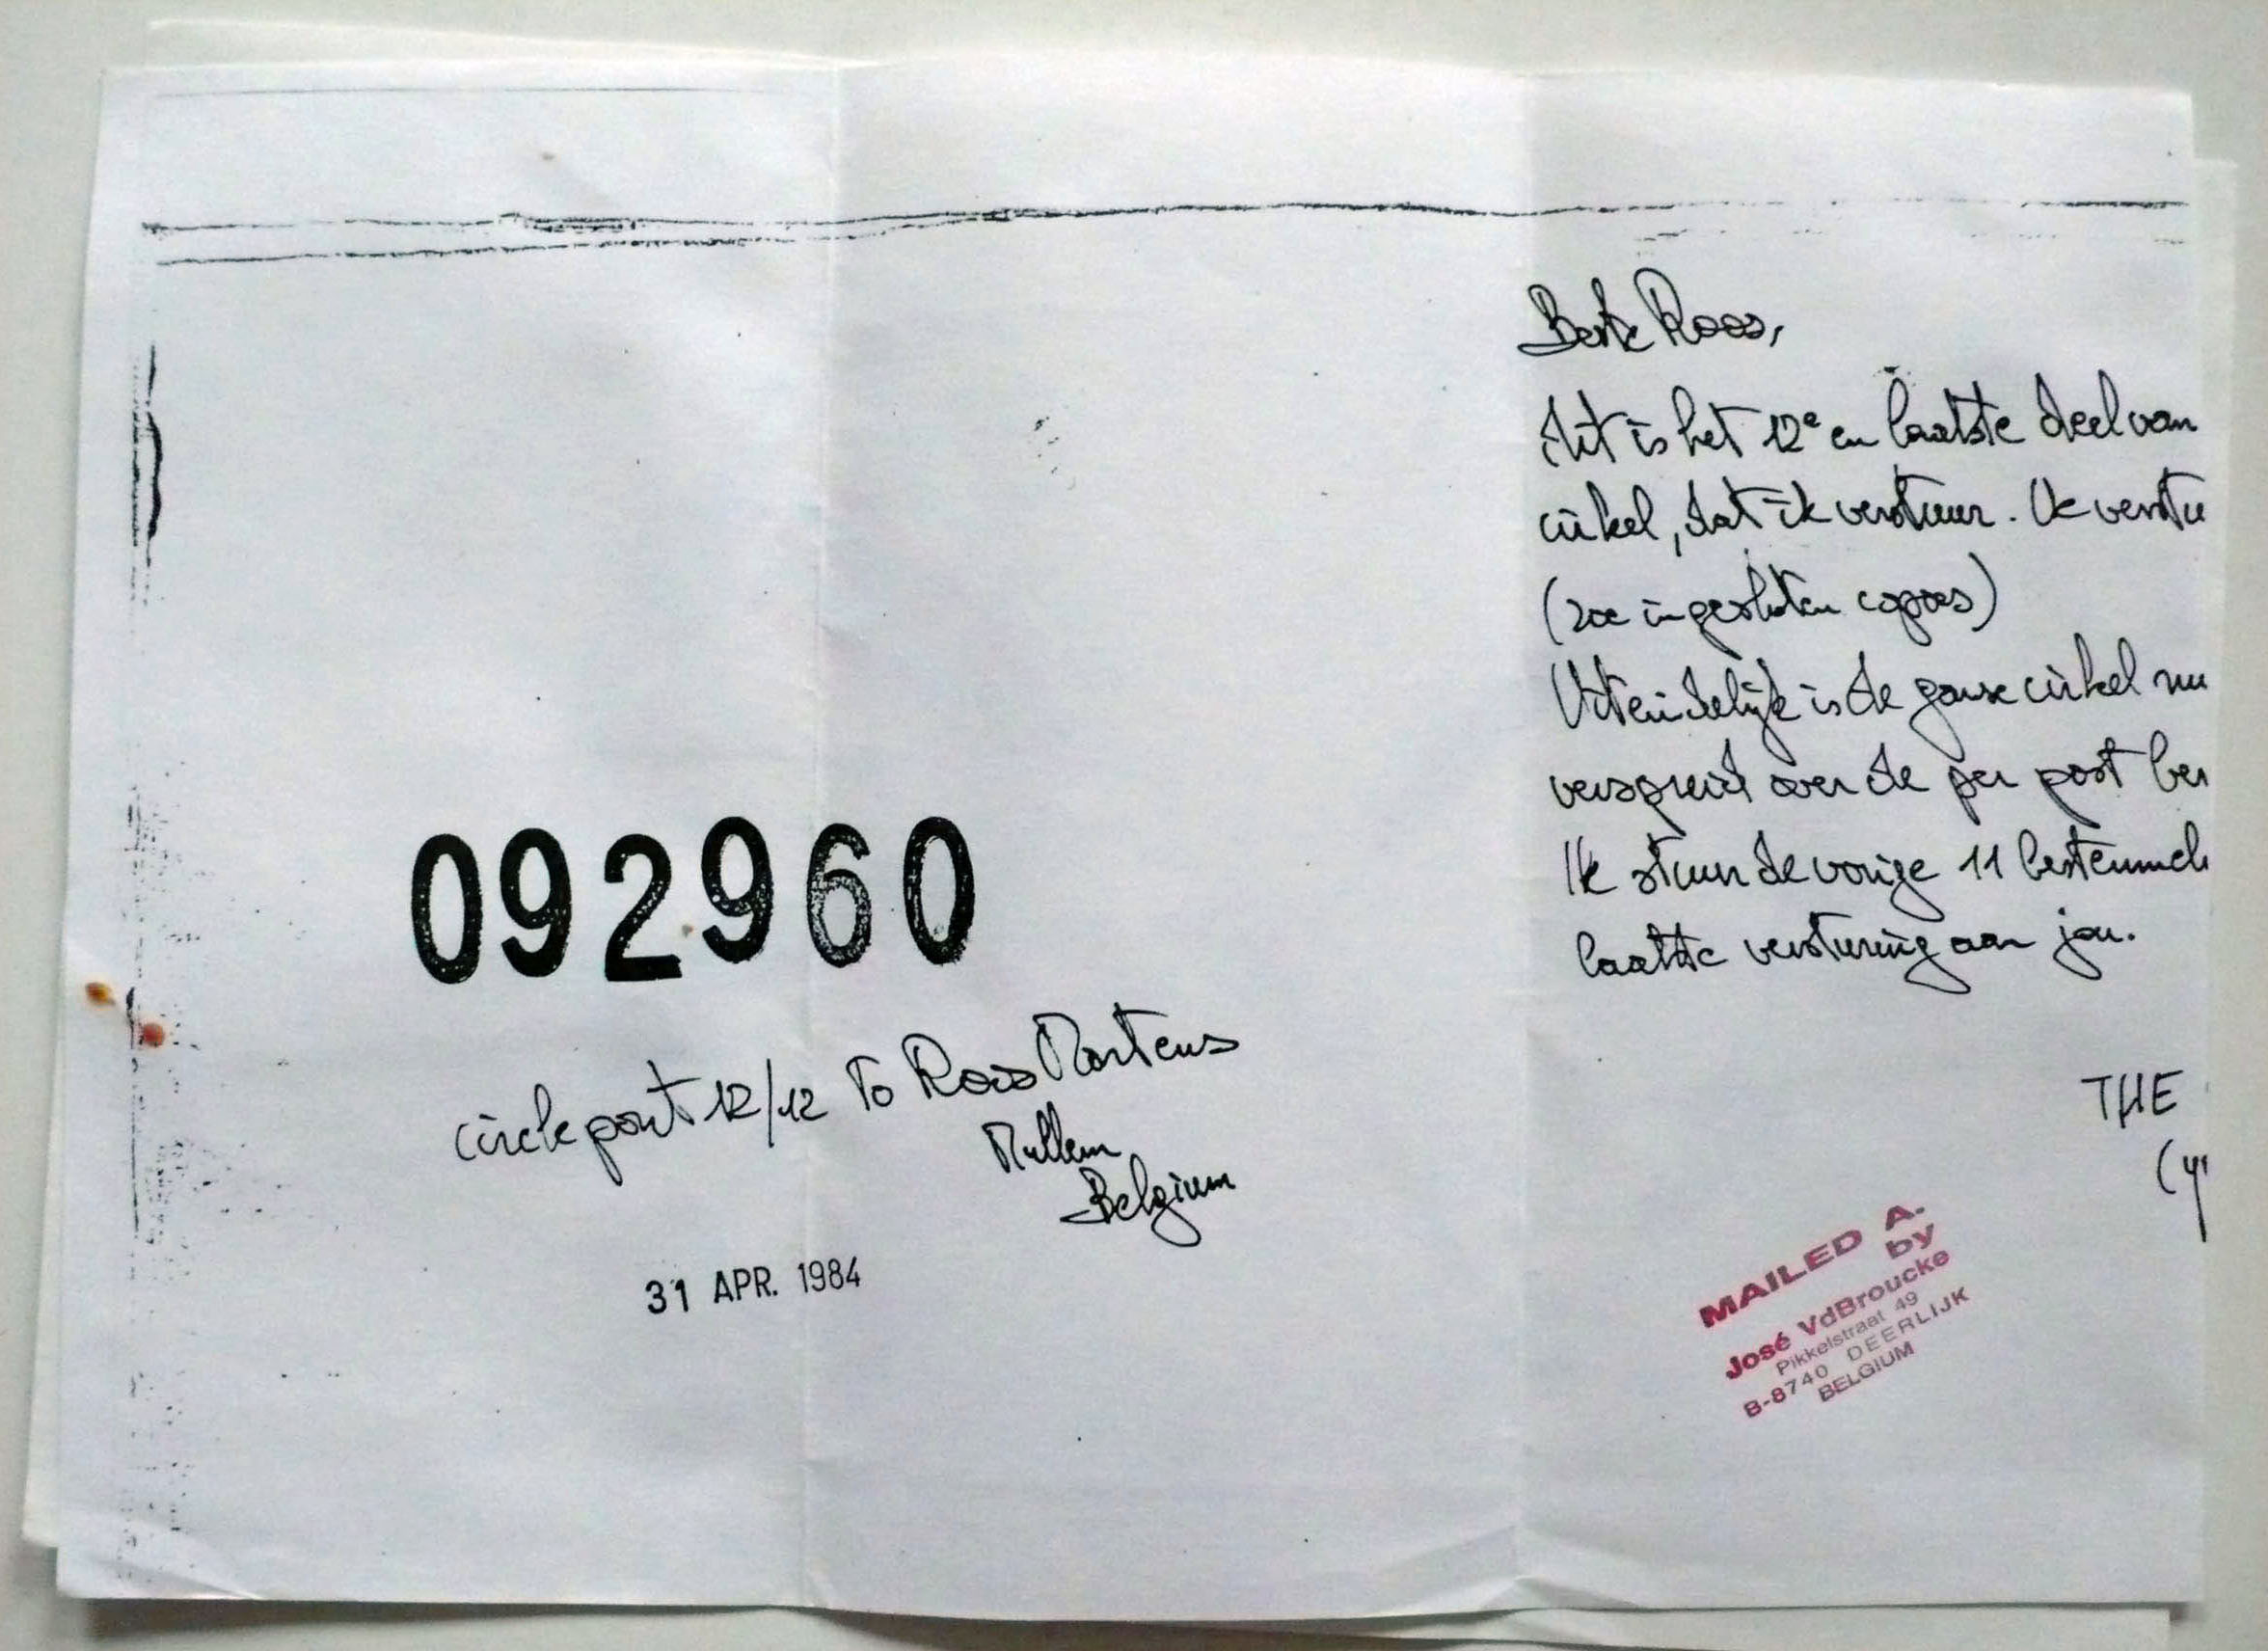 092960
circle part 12/12 To Roos Martens
Mullem
Belgium
31 APR. 1984
Beste Roos,
dit is het 12e en laatste deel van
cirkel, dat ik verstuur. Ik verstu
(zie ingesloten copies)
Uiteindelijk is de ganse cirkel nu
verspreid over de per post ber
Ik stuur de vorige 11 bestemmel
laatste versturing aan jou.
THE
(y
MAILED A.
by
José VdBroucke
Pikkelstraat 49
B-8740 DEERLIJK
BELGIUM